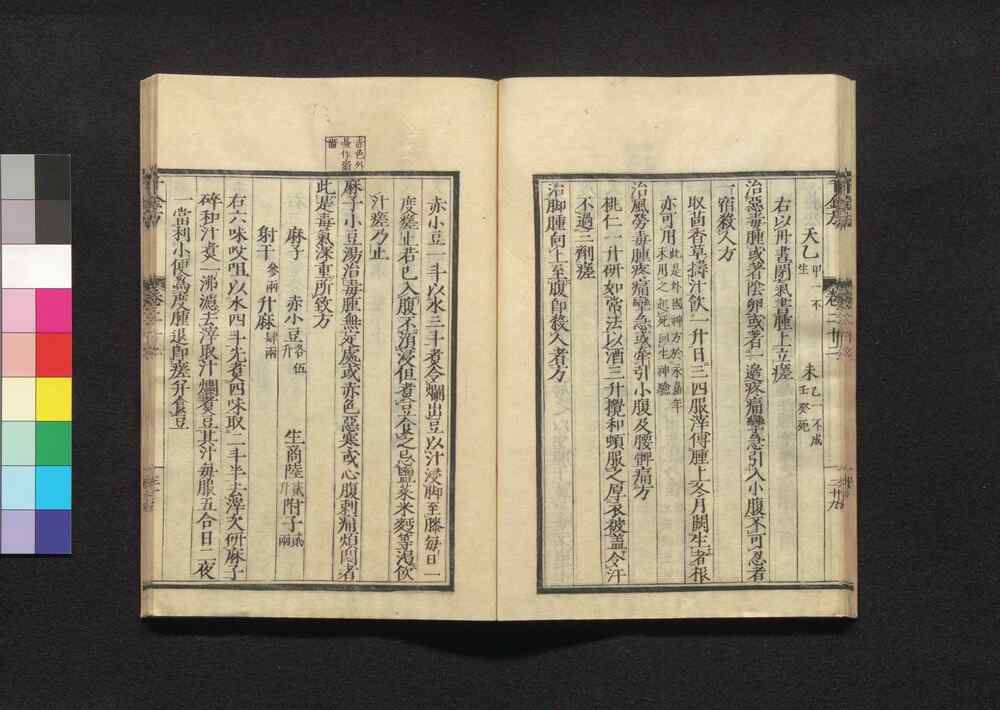 天乙 甲一不生 未 乙一不成 壬癸死
右以卅書閉氣書腫上立瘥
治惡毒腫或著陰卵或著一邊疼痛攣急引入小腹不可忍者
一宿殺人方
取茴香草擣汁飲一升日三四服滓傅腫上冬月闕生者根
亦可用 此是外國神方於永嘉年末用之起死回生神驗
治風勞毒腫疼痛攣急或牽引小腹及腰髀痛方
桃仁一升研如常法以酒三升攪和頓服之厚衣被蓋令汗
不過三劑瘥
治脚腫向上至腹即殺人者方
赤小豆一斗以水三斗煮令爛出豆以汁浸脚至膝每日一
度瘥止若已入腹不須浸但煮豆食之忌鹽菜米麫等渴飲
汁瘥乃止
赤色外
麻子小豆湯治毒腫無定處或赤色惡寒或心腹刺痛煩悶者
此是毒氣深重所致方
麻子 赤小豆各伍升 生商陸貳升 附子貳兩
射干參兩 升麻肆兩
右六味㕮咀以水四斗先煮四味取二斗半去滓次研麻子
碎和汁煮一沸濾去滓取汁爛煮豆其汁每服五合日二夜
一當利小便爲度腫退即瘥并食豆